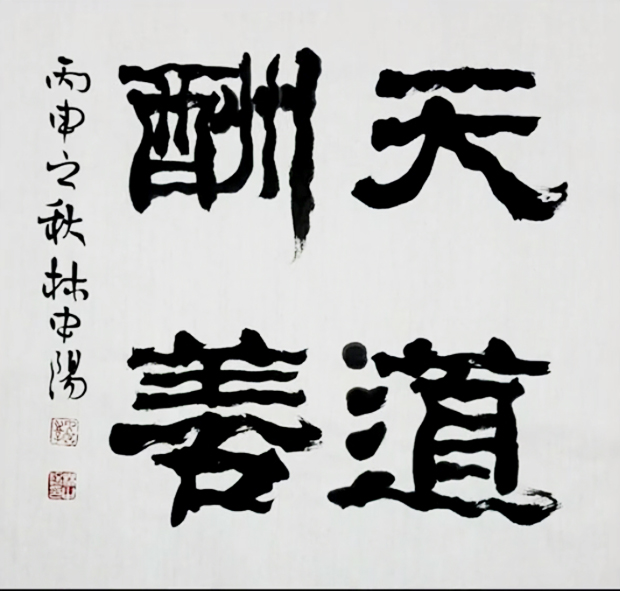 天道
酬善
丙申之秋林中陽